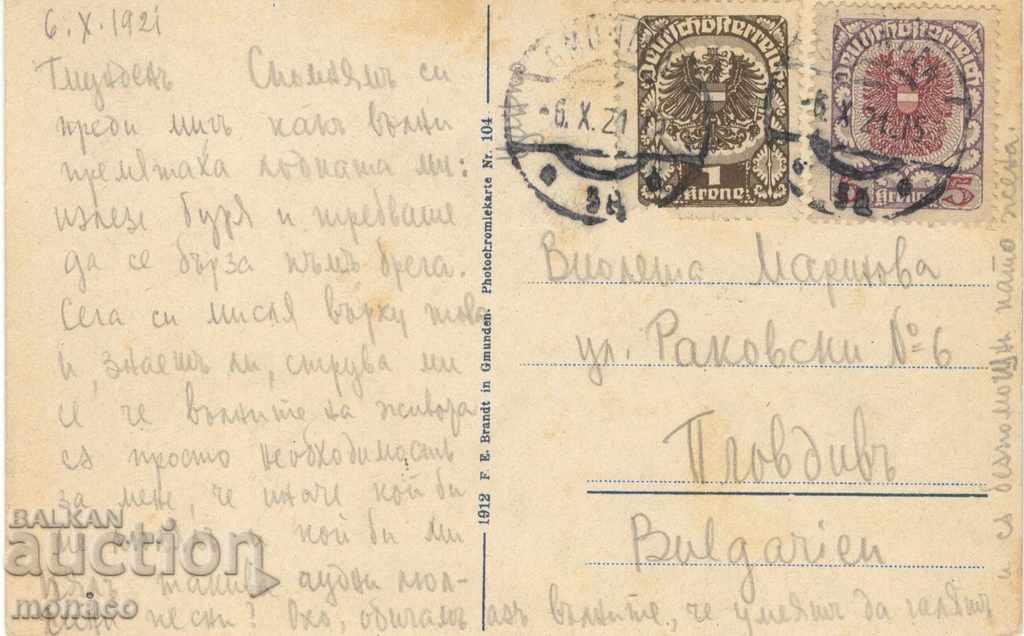 6.X.1921
Гмунденъ Спомнямъ си
преди мигъ какъ вълни
премятаха лодката ми:
излезе буря и требваше
да се бърза къмъ брега.
Сега си мисля върху това
и, знаешъ ли, струва ми
се че вълните на живота
са просто необходимость
за мене, че иначе кой би
кой би ми
пялъ такива чудни люл-
песни? Охо, обичамъ азъ вълните, че умеятъ да галятъ
и съ безпомощни като жена.
1912 F. E. Brandt in Gmunden. Photochromiekarte Nr. 104
Deutschösterreich
1
Krone
Deutschösterreich
5 Krone 5
GMUNDEN
-6.X.21.15
5a
-6.X.21.15
5a
Виолета Маринова
ул. Раковски № 6
Пловдивъ
Bulgarien
BALKAN
auction
monaco